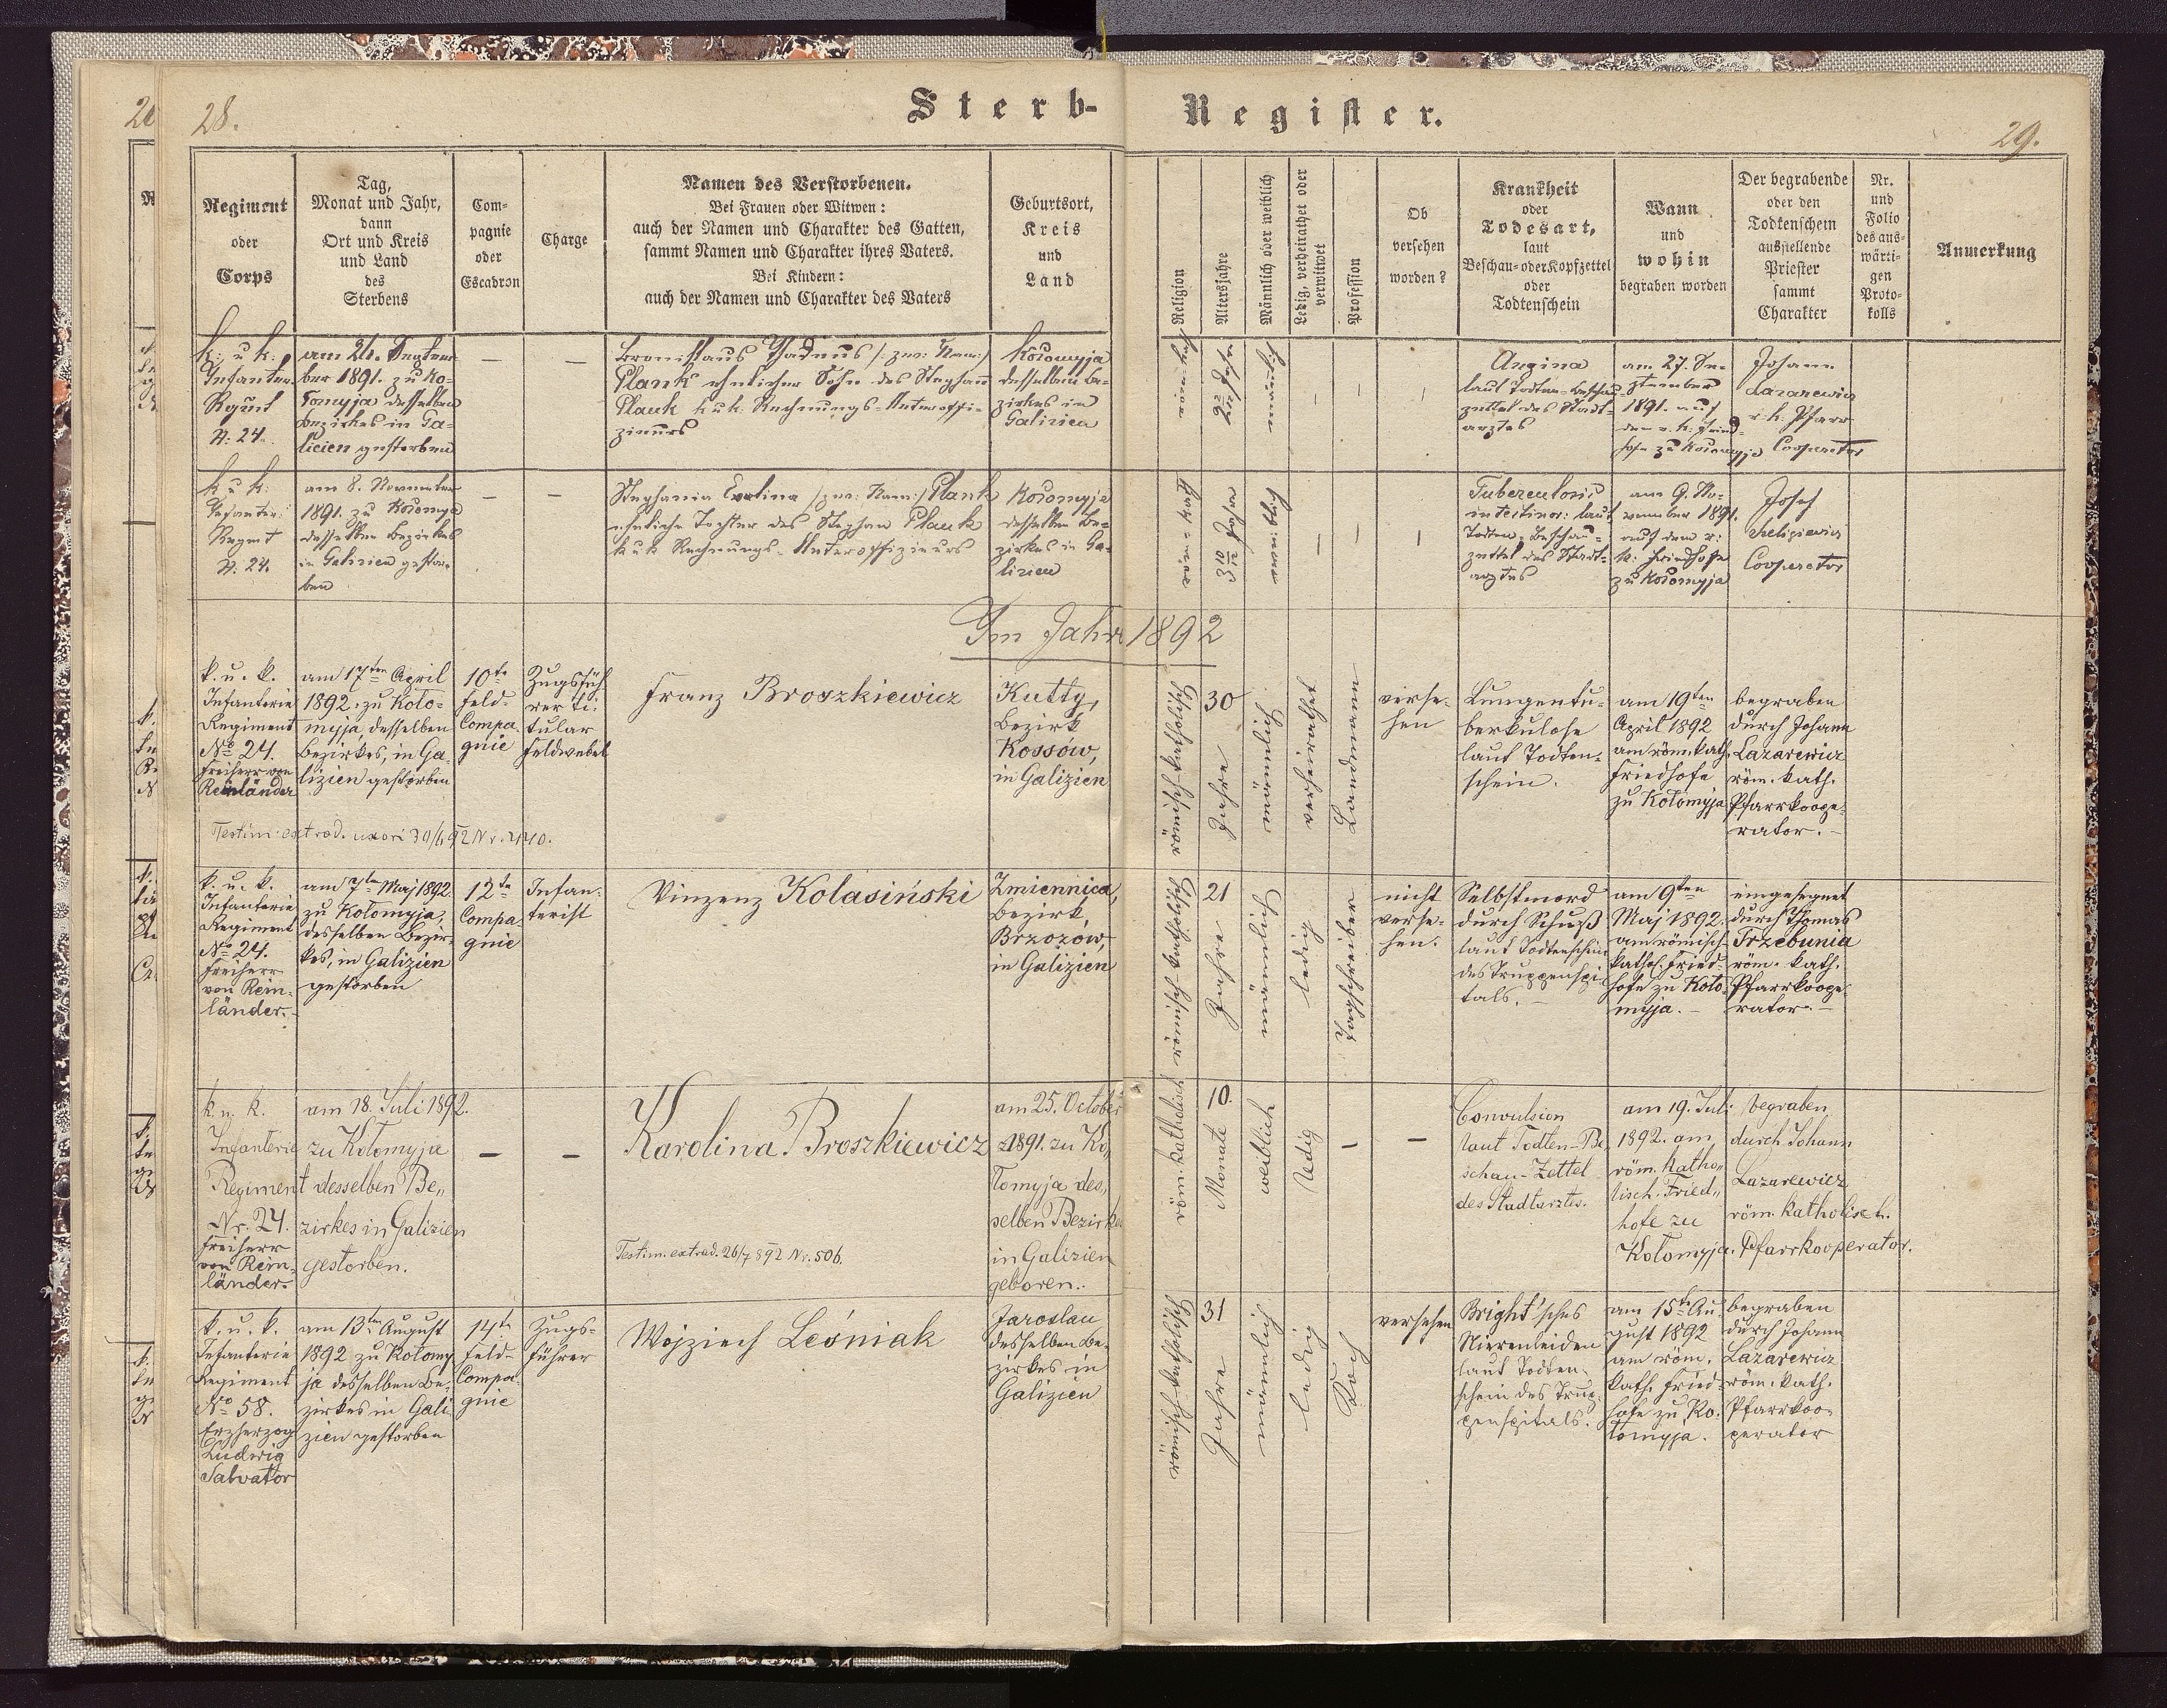 28.
Sterb-
Register.
29.
Regiment
oder
Corps
Tag,
Monat und Jahr,
dann
Ort und Kreis
und Land
des
Sterbens
Com-
pagnie
oder
Escadron
Charge
Namen des Verstorbenen.
Bei Frauen oder Witwen:
auch der Namen und Charakter des Gatten,
sammt Namen und Charakter ihres Vaters.
Bei Kindern:
auch der Namen und Charakter des Vaters
Geburtsort,
Kreis
und
Land
Religion
Altersjahre
Männlich oder weiblich
Ledig, verheirathet oder
verwitwet
Profession
Ob
versehen
worden?
Krankheit
oder
Todesart,
laut
Beschau- oder Kopfzettel
oder
Todtenschein
Wann
und
wohin
begraben worden
Der begrabende
oder den
Todtenschein
ausstellende
Priester
sammt
Charakter
Nr.
und
Folio
des aus-
wärti-
gen
Proto-
kolls
Anmerkung
k: u k:
Infanter.
Regmt
N: 24.
ber 1891. zu Ko-
lomyja desselben
Bezirkes in Ga-
licien gestorben
—
—
Bronislaus
Plank ehelicher Sohn des Stephan
Plank k u k. Rechnungs-Unteroffi-
ziers
Kołomyja
desselben Be-
zirkes in
Galizien
männlich
–
–
–
Angina
laut Todten-Beschau-
zettel des Stadt-
arztes
am 27. Se-
ptember
1891. auf
dem r. k. Fried-
hofe zu Kołomyja
Johann
Lazarewicz
r. k. Pfarr
Cooperator
k u k:
Infanter.
Regmt
N: 24.
am 8. November
1891. zu Kołomyja
desselben Bezirkes
in Galizien gestor-
ben
—
—
Stephania /zw: Nam:/ Plank
eheliche Tochter des Stephan Plank
k u k Rechnungs-Unteroffiziers
Kołomyja
desselben Be-
zirkes in Ga-
lizien
röm: kath
3 10/12 Jahre
–
–
–
Tuberculosis
intestinor: laut
Todten-Beschau-
zettel des Stadt-
arztes
am 9. No-
vember 1891.
auf dem r:
k: Friedhofe
zu Kołomyja
Josef
Cooperator
Im Jahre 1892
k. u. k.
Infanterie
Regiment
No 24.
Freiherr von
Reinländer
am 17ten April
1892. zu Koło-
myja, desselben
Bezirkes, in Ga-
lizien gestorben
10te
Feld-
Compa
gnie
Zugsfüh-
rer ti-
tular
Feldwebel
Franz Broszkiewicz
Kutty,
Bezirk
Kossów,
in Galizien
römisch-katholisch
30
Jahre
männlich
verheirathet
Landmann
verse-
hen
Lungentu-
berkulose
laut Todten-
schein.
am 19ten
April 1892
am röm. kath.
Friedhofe
zu Kołomyja
begraben
durch Johann
Lazarewicz
röm. kath.
Pfarrkoope-
rator. –
Testim: extrad. uxori 30/4 92 Nr. 440.
k. u. k.
Infanterie
Regiment
No 24.
Freiherr
von Rein-
länder.
am 7ten Maj 1892.
zu Kołomyja,
desselben Bezir-
kes, in Galizien
gestorben
12te
Compa-
gnie
Infan-
terist
Vinzenz Kolasiński
Zmiennica,
Bezirk,
Brzozów,
in Galizien
römisch-katholisch
21
Jahre
männlich
ledig
Tagschreiber
nicht
verse-
hen.
Selbstmord
durch Schuß
laut Todtenschein
des Truppenspi-
tals. –
am 9ten
Maj 1892.
am römisch-
kathol. Fried-
hofe zu Koło-
myja. –
eingesegnet
durch Thomas
Trzebunia
röm. kath.
Pfarrkoope-
rator. –
k. u. k.
Infanterie
Regiment
Nr. 24.
Freiherr
von Rein-
länder.
am 18. Juli 1892.
zu Kołomyja
desselben Be„
zirkes in Galizien
gestorben.
—
—
Karolina Broszkiewicz
Testim. extrad. 26/7 892 Nr. 506.
am 25. October
1891. zu Ko„
lomyja des„
selben Bezirkes
in Galizien
geboren.
röm. katholisch
10.
Monate
weiblich
ledig
–
–
Convulsion
laut Todten-Be
schau-Zettel
des Stadtarztes.
am 19. Juli
1892. am
röm. katho„
lisch. Fried„
hofe zu
Kołomyja.
begraben
durch Johann
Lazarewicz
röm. katholisch.
Pfarrkooperator.
k. u. k.
Infanterie
Regiment
No 58.
Erzherzog
Ludwig
Salvator
am 13ten August
1892 zu Kołomy
ja desselben Be-
zirkes in Gali
zien gestorben
14te
Feld-
Compa-
gnie
Zugs-
führer
Wojziech Leśniak
Jaroslau
desselben Be-
zirkes in
Galizien
römisch-katholisch
31
Jahre
männlich
ledig
Koch
versehen
Bright'sches
Nierenleiden
laut Todten-
schein des Trup-
penspitals.
am 15ten Au-
gust 1892
am röm.
kath. Fried-
hofe zu Ko-
łomyja.
begraben
durch Johann
Lazarewicz
röm. kath.
Pfarrkoo-
perator